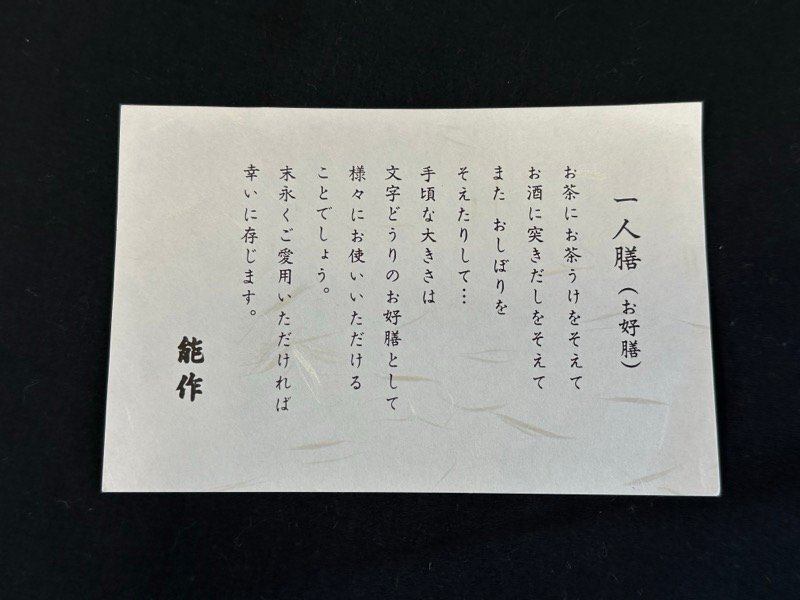 一人膳(お好膳)
お茶にお茶うけをそえて
お酒に突きだしをそえて
また おしぼりを
そえたりして…
手頃な大きさは
文字どうりのお好膳として
様々にお使いいただける
ことでしょう。
末永くご愛用いただければ
幸いに存じます。
能作